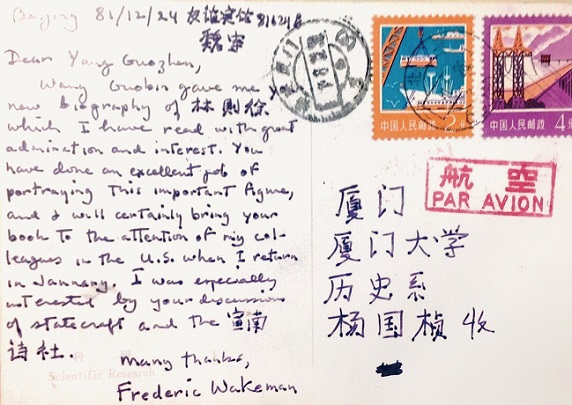 Beijing 81/12/24 友谊宾馆 81624房
魏斐
Dear Yang Guozhen,
Wang Guobin gave me yr
new biography of 林则徐
which I have read with great
admiration and interest. You
have done an excellent job of
portraying this important figure,
and I will certainly bring your
book to the attention of my col-
leagues in the U.S. when I return
in January. I was especially
interested by your discussions
of statecraft and the 宣南
诗社.
Many thanks,
Frederic Wakeman
Scientific Research
中国人民邮政
中国人民邮政 4分
航空
PAR AVION
厦门
厦门大学
历史系
杨国桢 收